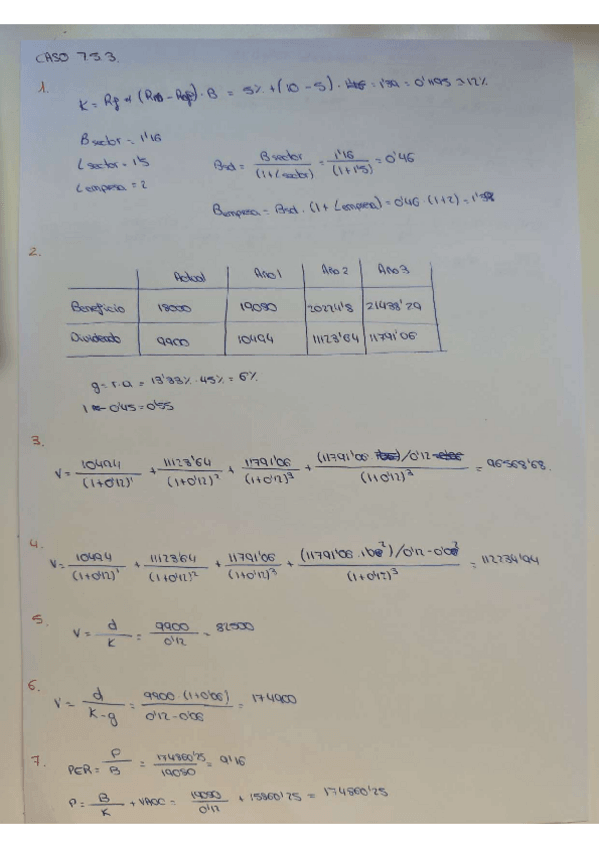 CASO 7.5.3.
1.
K = Rf + (Rm - Rf) · B = 5% + (10 - 5) · 1'39 = 0'1195 ≈ 12%
Bsector = 1'16
Lsector = 1'5
Lempresa = 2
Bnd = Bsector / (1 + Lsector) = 1'16 / (1 + 1'5) = 0'46
Bempresa = Bnd · (1 + Lempresa) = 0'46 · (1 + 2) = 1'38
2.
Actual Año 1 Año 2 Año 3
Beneficio 18000 19080 20224'8 21438'29
Dividendo 9900 10494 11123'64 11791'06
g = r · a = 13'33% · 45% = 6%
1 - 0'45 = 0'55
3.
V = 10494 / (1+0'12)¹ + 11123'64 / (1+0'12)² + 11791'06 / (1+0'12)³ + (11791'06) / 0'12 / (1+0'12)³ = 96568'68.
4.
V = 10494 / (1+0'12)¹ + 11123'64 / (1+0'12)² + 11791'06 / (1+0'12)³ + / (1+0'12)³ = 112234'94
5.
V = d / K = 9900 / 0'12 = 82500
6.
V = d / K - g = 9900 · (1+0'06) / 0'12 - 0'06 = 174900
7.
PER = P / B = 174860'25 / 19080 = 9'16
P = B / K + VAOC = 19080 / 0'12 + 15860'25 = 174860'25